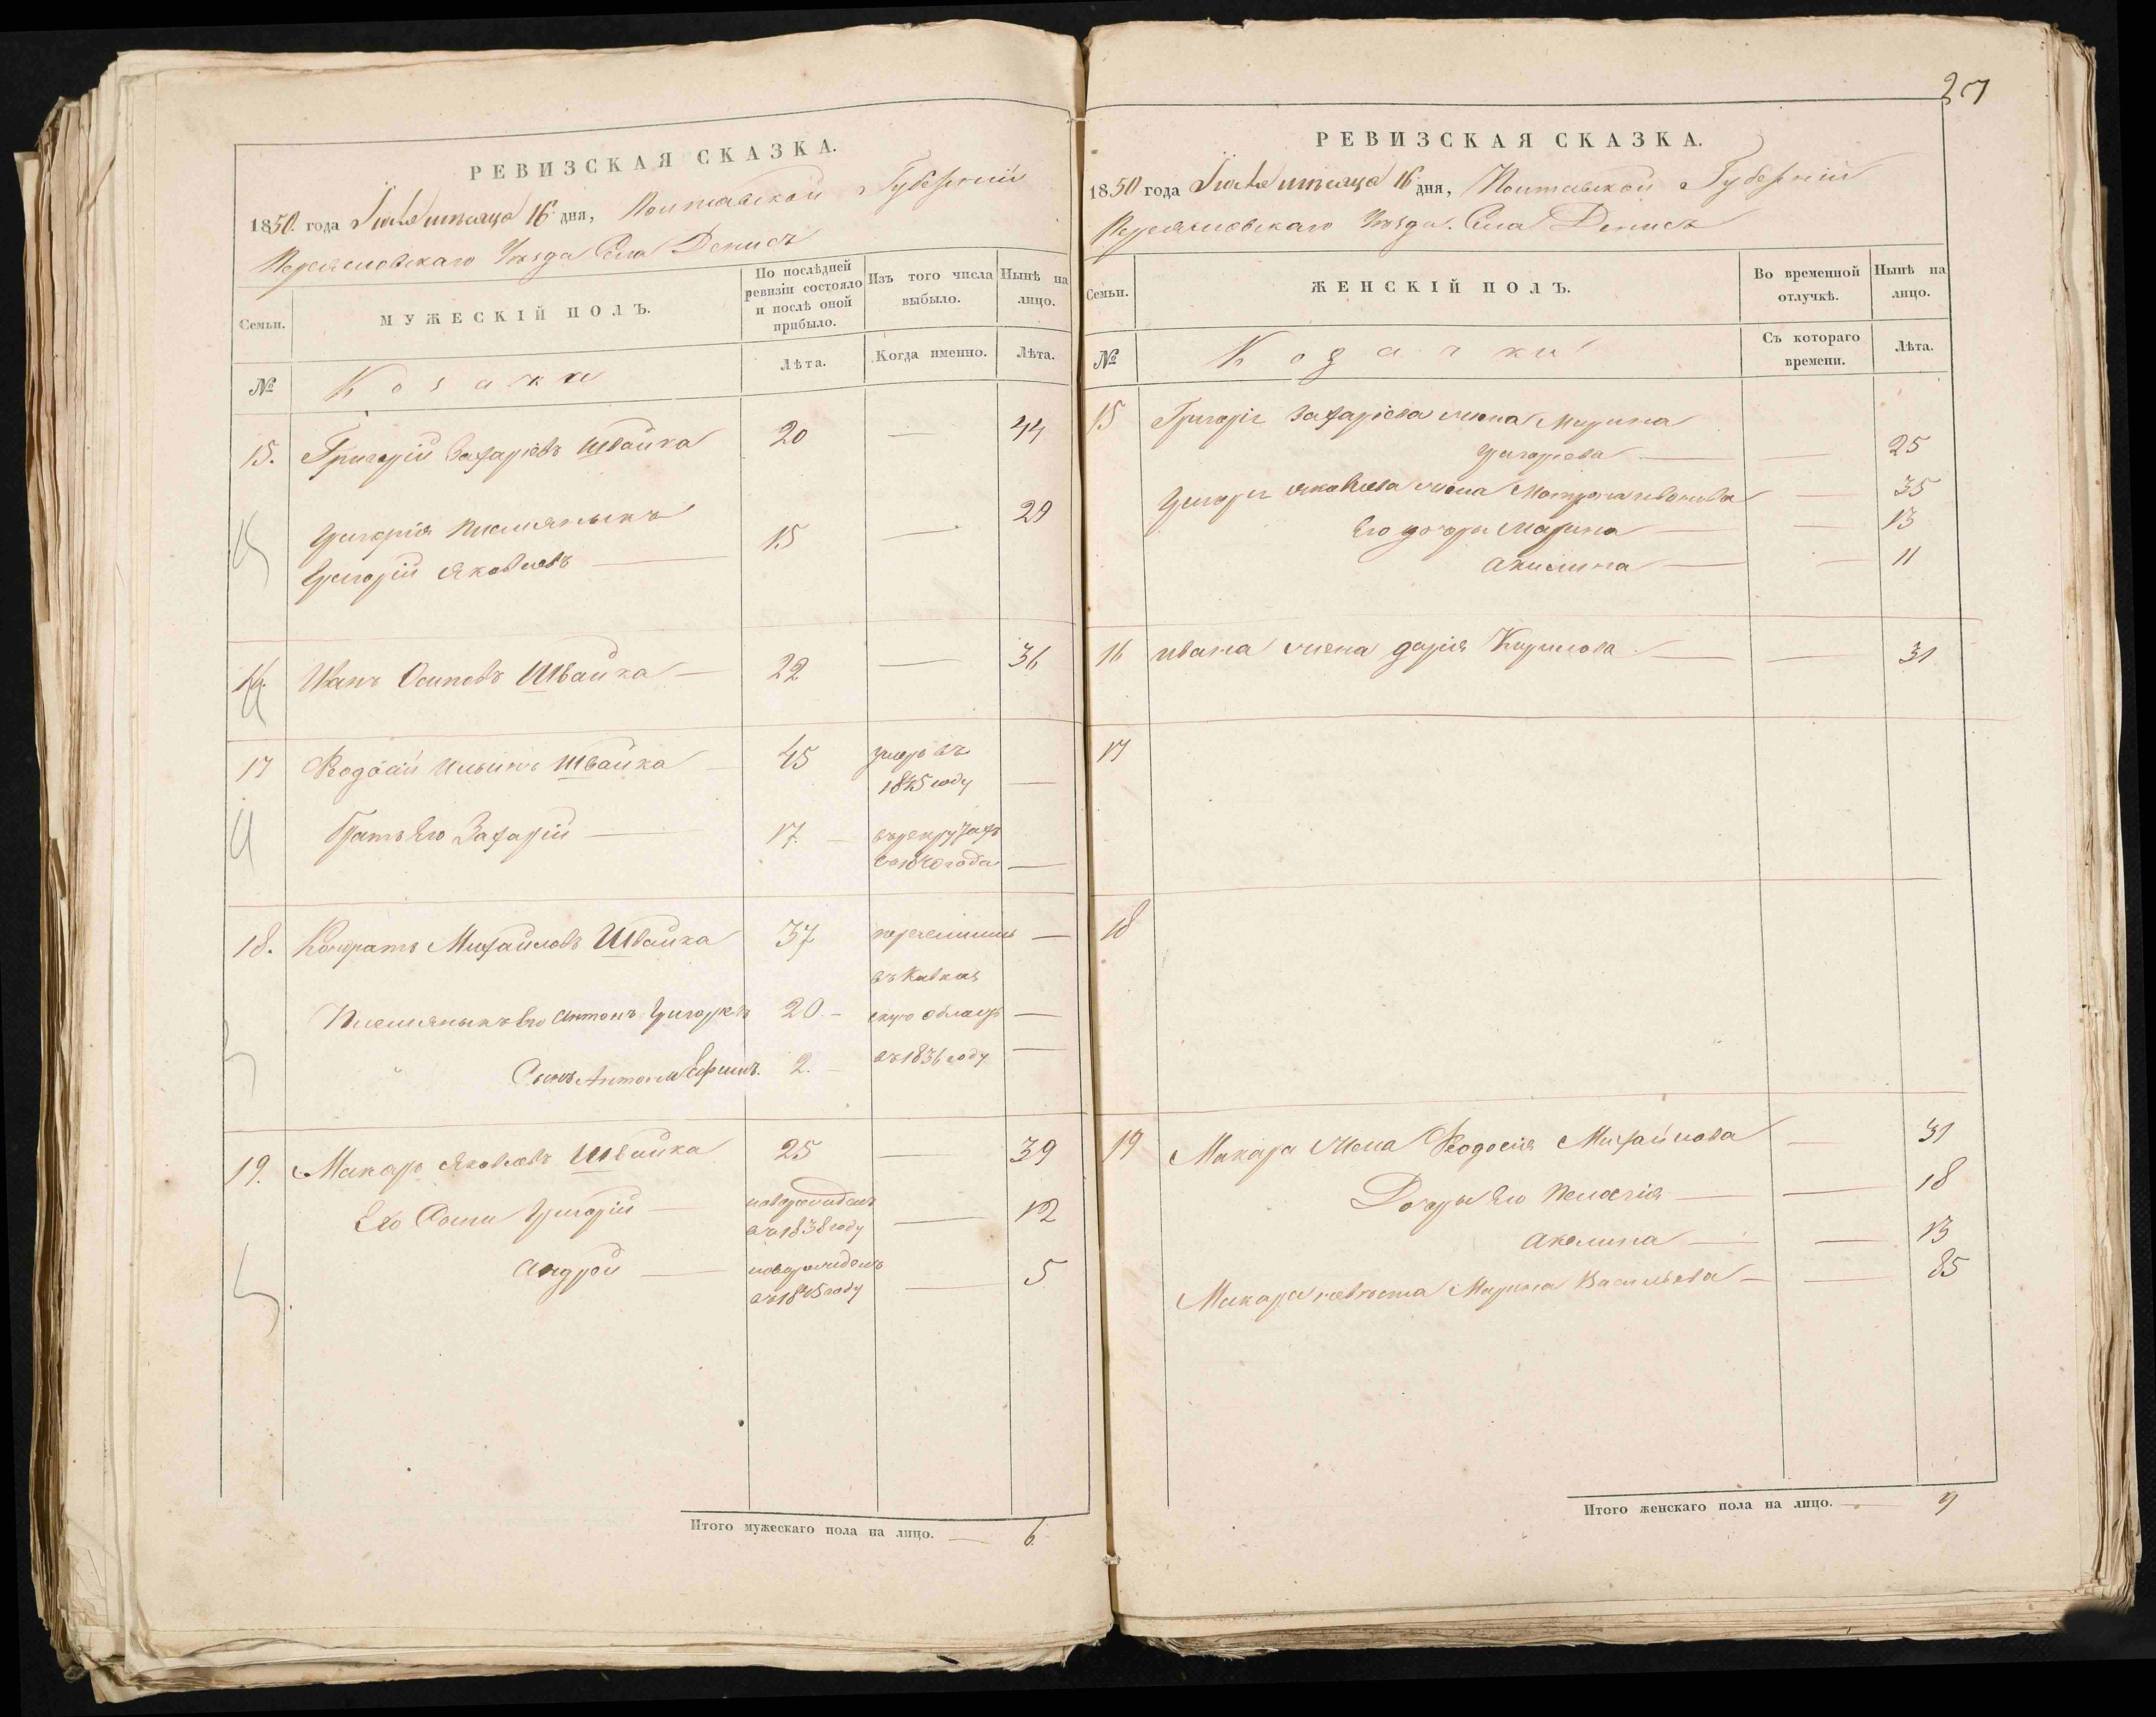 27
РЕВИЗСКАЯ СКАЗКА.
1850. года Іюля мѣсяца 16 дня, Полтавской Губерніи
Переясловскаго Уѣзда Села Денисъ
Семьи.
МУЖЕСКІЙ ПОЛЪ.
По послѣдней ревизіи состояло и послѣ оной прибыло.
Изъ того числа выбыло.
Нынѣ на лицо.
№
Козаки
Лѣта.
Когда именно.
Лѣта.
15. Григорій Захаріевъ Швайка 20 — 44
Григорія племяныкъ
Григорій Яковлевъ — 15 — 29
16. Иванъ Осиповъ Швайка — 22 — 36
17 Ѳеодосій Ильинъ Швайка — 45 умеръ въ
1845 году —
Братъ Его Захарій — 17. —
съ 1840 года —
18. Кондратъ Михайловъ Швайка 37 —
въ Кавказ
Племяныкъ Его Антонъ Григорьевъ 20. — скую область —
Сынъ Антона Ефимъ. 2. — въ 1836 году —
19. Макаръ Яковлевъ Швайка 25 — 39
Его Сыны Григорій — новорожденъ
въ 1838 году — 12
Андрей — новорожденъ
въ 1845 году — 5
Итого мужескаго пола на лицо. — 6.
РЕВИЗСКАЯ СКАЗКА.
1850 года Іюля мѣсяца 16 дня, Полтавской Губерніи
Переясловскаго Уѣзда. Села Денисъ
Семьи.
ЖЕНСКІЙ ПОЛЪ.
Во временной отлучкѣ.
Нынѣ на лицо.
№
Козачки
Съ котораго времени.
Лѣта.
15 Григорія Захаріева жена Марина
Григорьева — — 25
Григорія Яковлева жена Мотрона Иванова — 35
Его дочери Марина — — 13
Акилина — — 11
16 Ивана жена Дарія Кирилова — — 31
17
18
19 Макара жена Ѳеодосія Михайлова — 31
Дочеры Его Пелагія — — 18
Акелина — — 13
Макара невѣста Марина Васильева — — 85
Итого женскаго пола на лицо. — 9